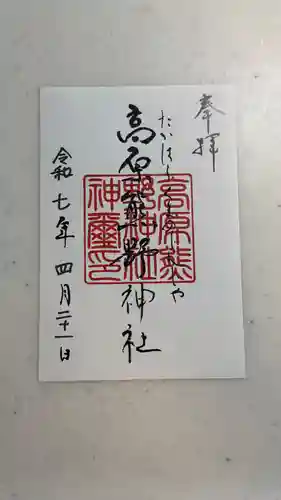 奉拝
たかはらくまのじんじゃ
高原熊野神社
高原熊野神社神璽印
令和七年四月二十一日